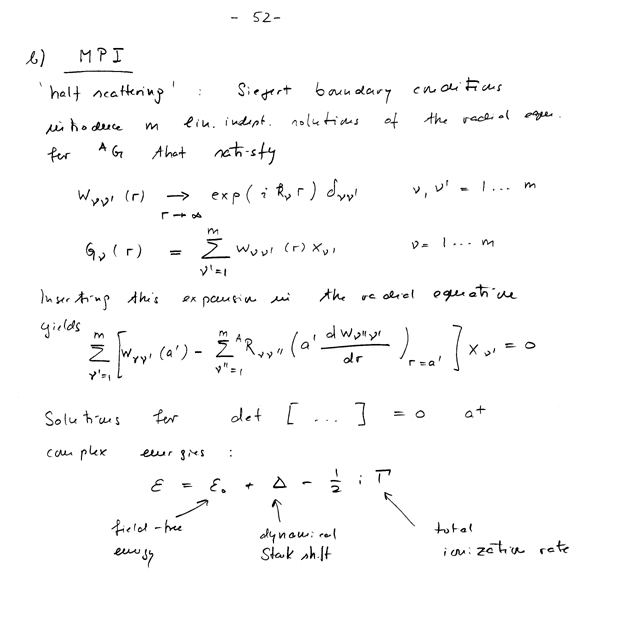 - 52 -
b) MPI
'half scattering' : Siegert boundary conditions
introduce m lin. indept. solutions of the radial eqn.
for ᴬG that satisfy
W_νν'(r) → exp(i k_ν r) δ_νν' ν, ν' = 1 ... m
r → ∞
G_ν(r) = Σ_{ν'=1}^{m} W_νν'(r) x_ν' ν = 1 ... m
Inserting this expansion in the radial equation
yields
Σ_{ν'=1}^{m} [ W_νν'(a') - Σ_{ν''=1}^{m} ᴬR_νν'' ( a' dW_ν''ν' / dr )_{r=a'} ] x_ν' = 0
Solutions for det [ ... ] = 0 at
complex energies :
ε = ε₀ + Δ - 1/2 i Γ
field-free dynamical total
energy Stark shift ionization rate